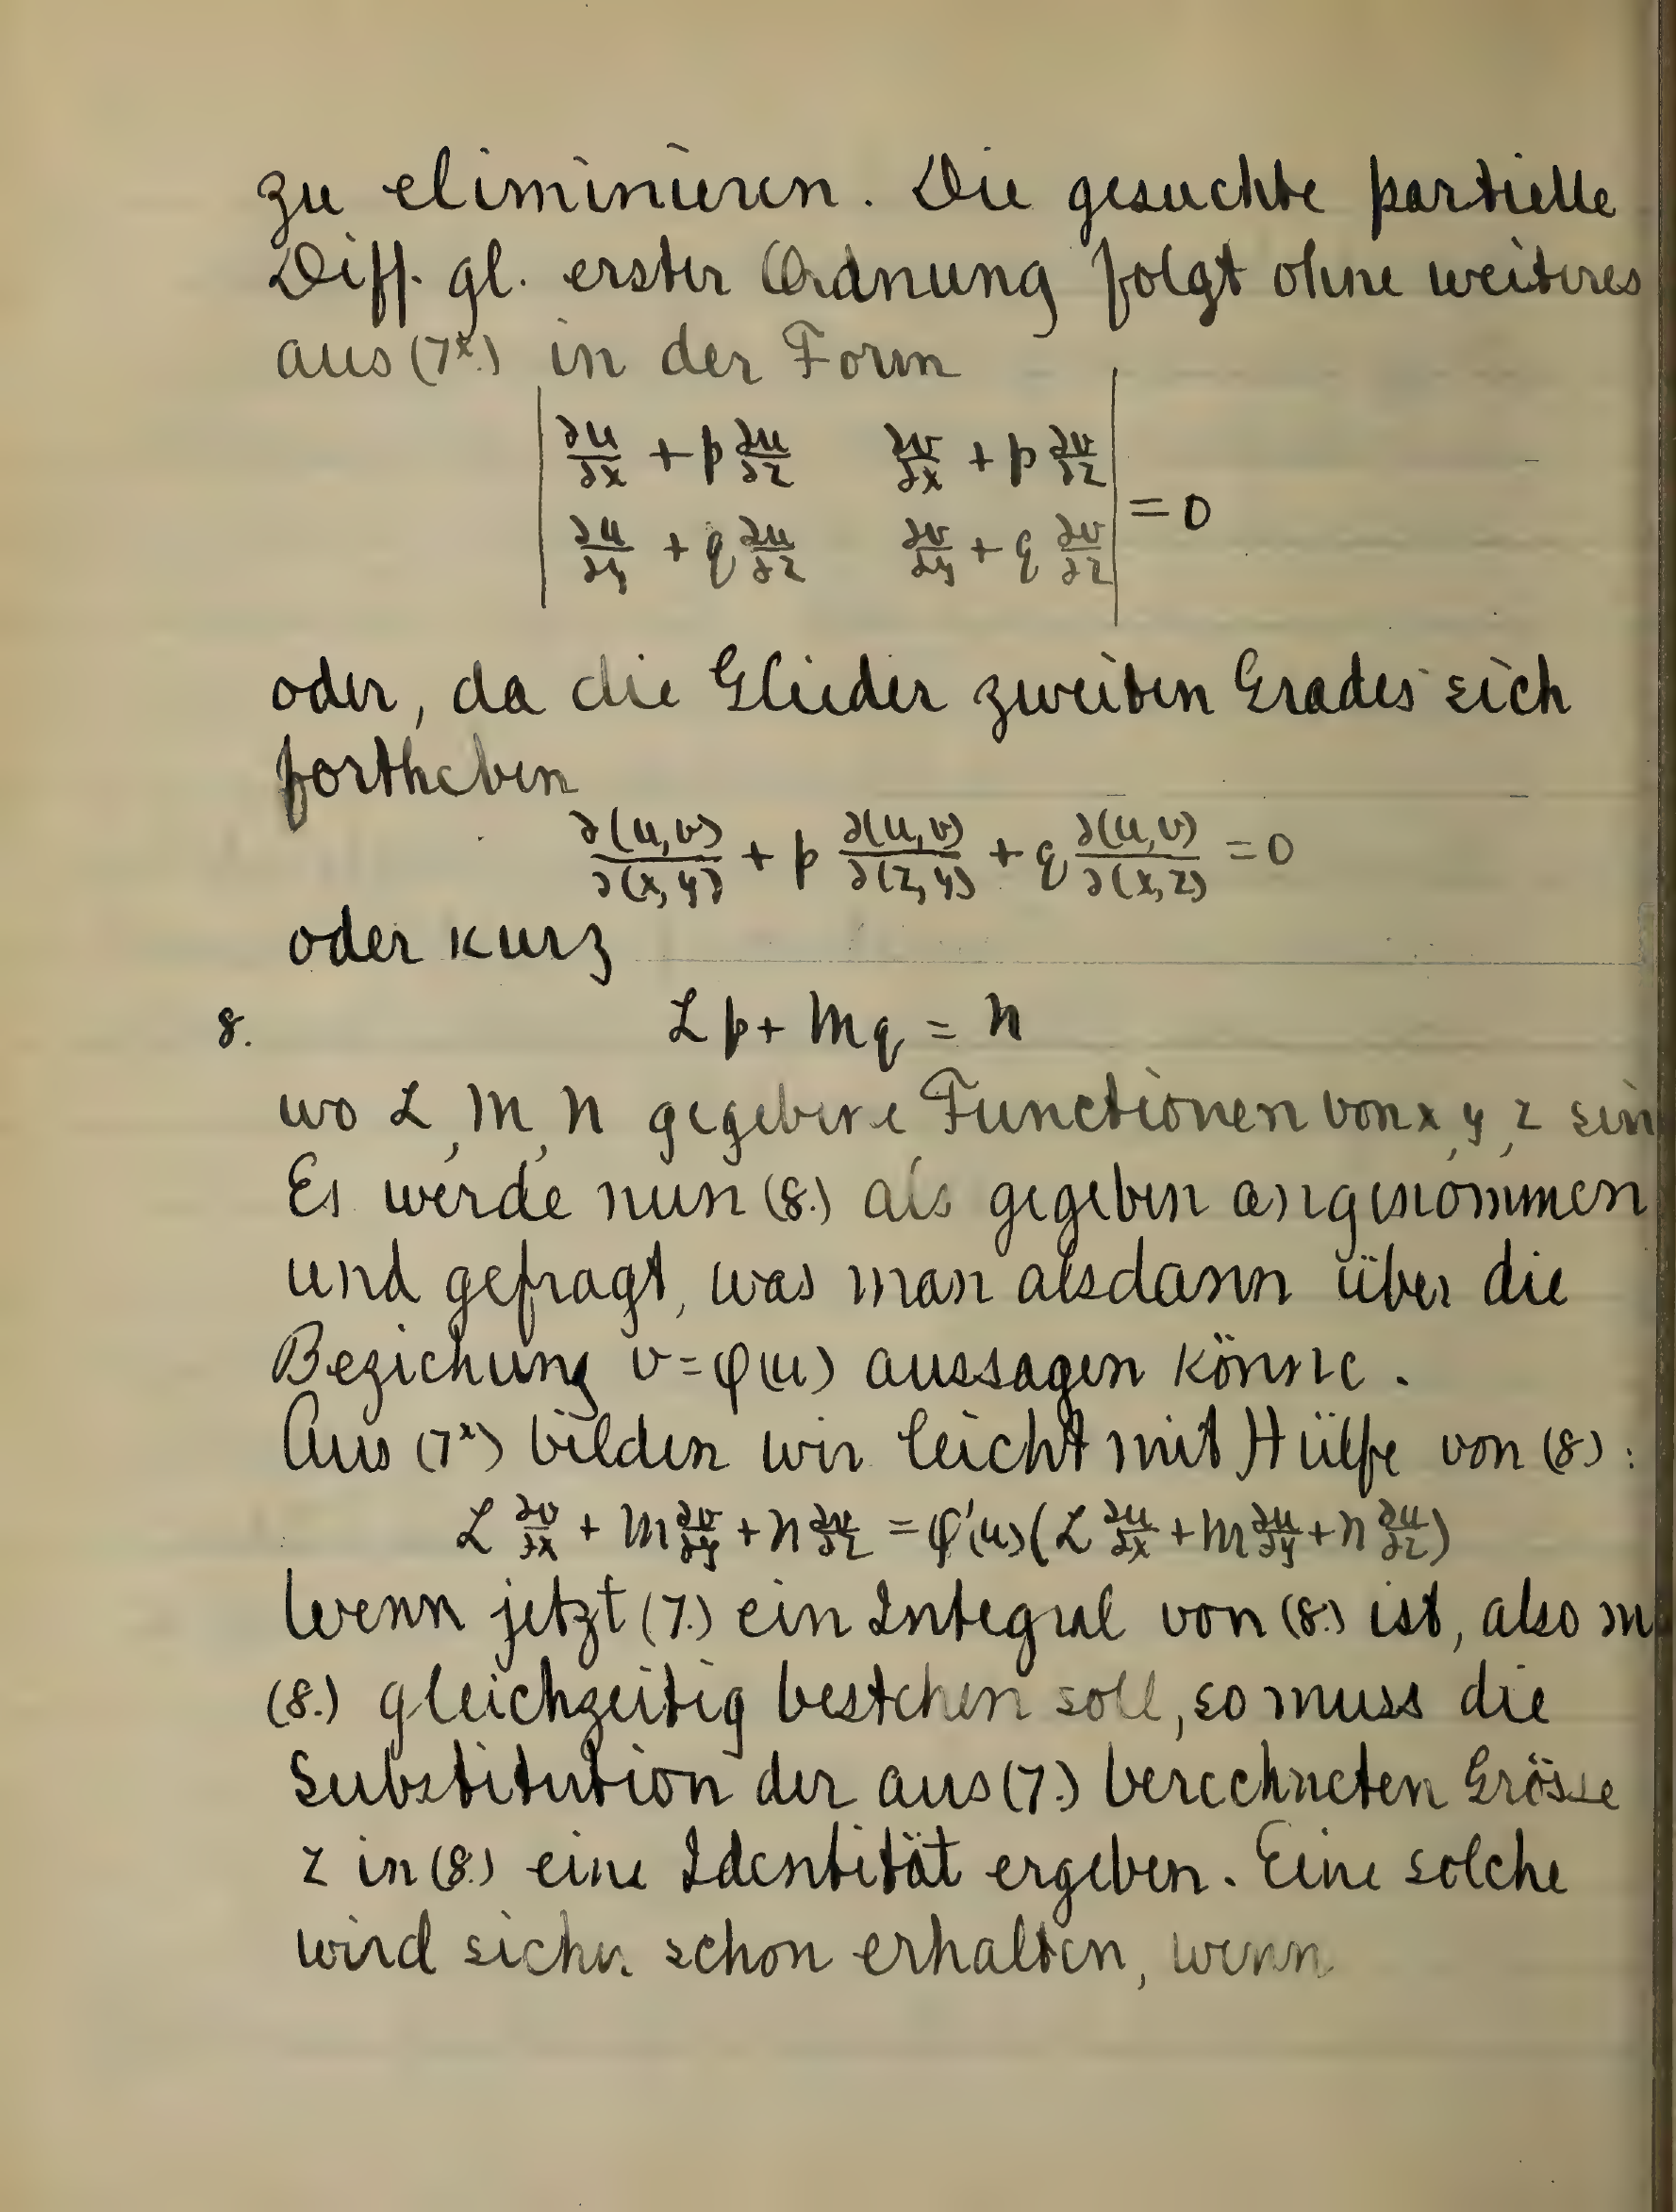 zu eliminieren. Die gesuchte partielle
Diff. gl. erster Ordnung folgt ohne weiteres
aus (7*.) in der Form
| ∂u/∂x + p ∂u/∂z   ∂v/∂x + p ∂v/∂z |
| ∂u/∂y + q ∂u/∂z   ∂v/∂y + q ∂v/∂z | = 0
oder, da die Glieder zweiten Grades sich
fortheben
∂(u,v)/∂(x,y) + p ∂(u,v)/∂(z,y) + q ∂(u,v)/∂(x,z) = 0
oder kurz
8. Lp + Mq = N
wo L, M, N gegebene Functionen von x, y, z sin
Es werde nun (8.) als gegeben angenommen
und gefragt, was man alsdann über die
Beziehung v = φ(u) aussagen könne.
Aus (7*) bilden wir leicht mit Hülfe von (8):
L ∂v/∂x + M ∂v/∂y + N ∂v/∂z = φ'(u) (L ∂u/∂x + M ∂u/∂y + N ∂u/∂z)
Wenn jetzt (7.) ein Integral von (8.) ist, also m
(8.) gleichzeitig bestehen soll, so muss die
Substitution der aus (7.) berechneten Grösse
z in (8.) eine Identität ergeben. Eine solche
wird sicher schon erhalten, wenn